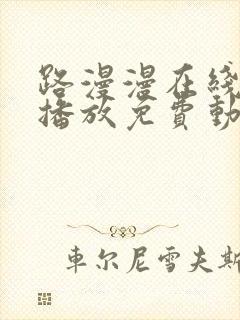 路漫漫在线
播放免費動
車尔尼雪夫斯